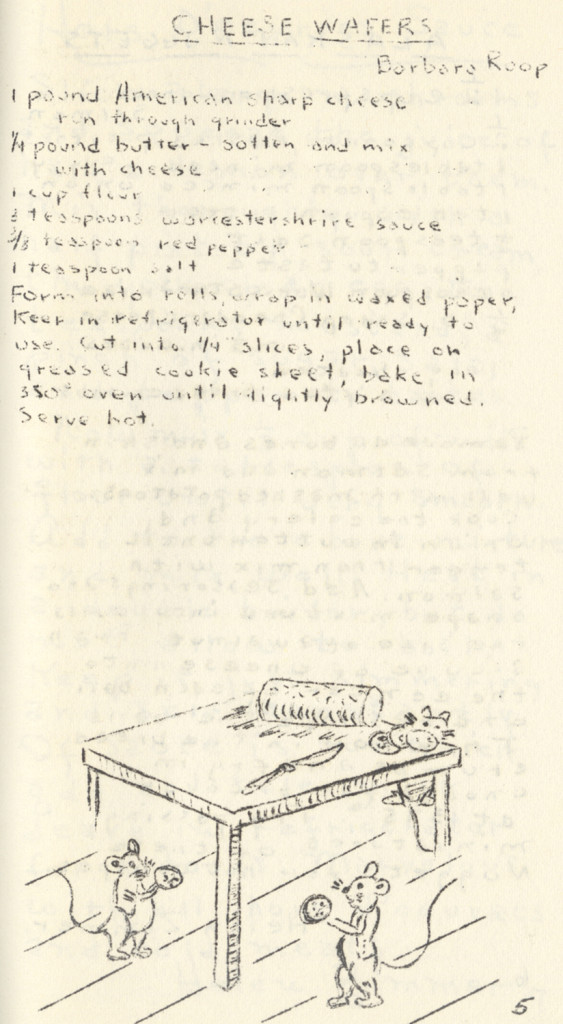 CHEESE WAFERS
Barbara Roop
1 pound American sharp cheese
run through grinder
1/4 pound butter - soften and mix
with cheese
1 cup flour
teaspoons worcestershrire sauce
teaspoon red pepper
1 teaspoon salt
Form into rolls, wrap in waxed paper,
Keep in refrigerator until ready to
use. Cut into 1/4 slices, place on
greased cookie sheet, bake in
350° oven until lightly browned.
Serve hot.
5